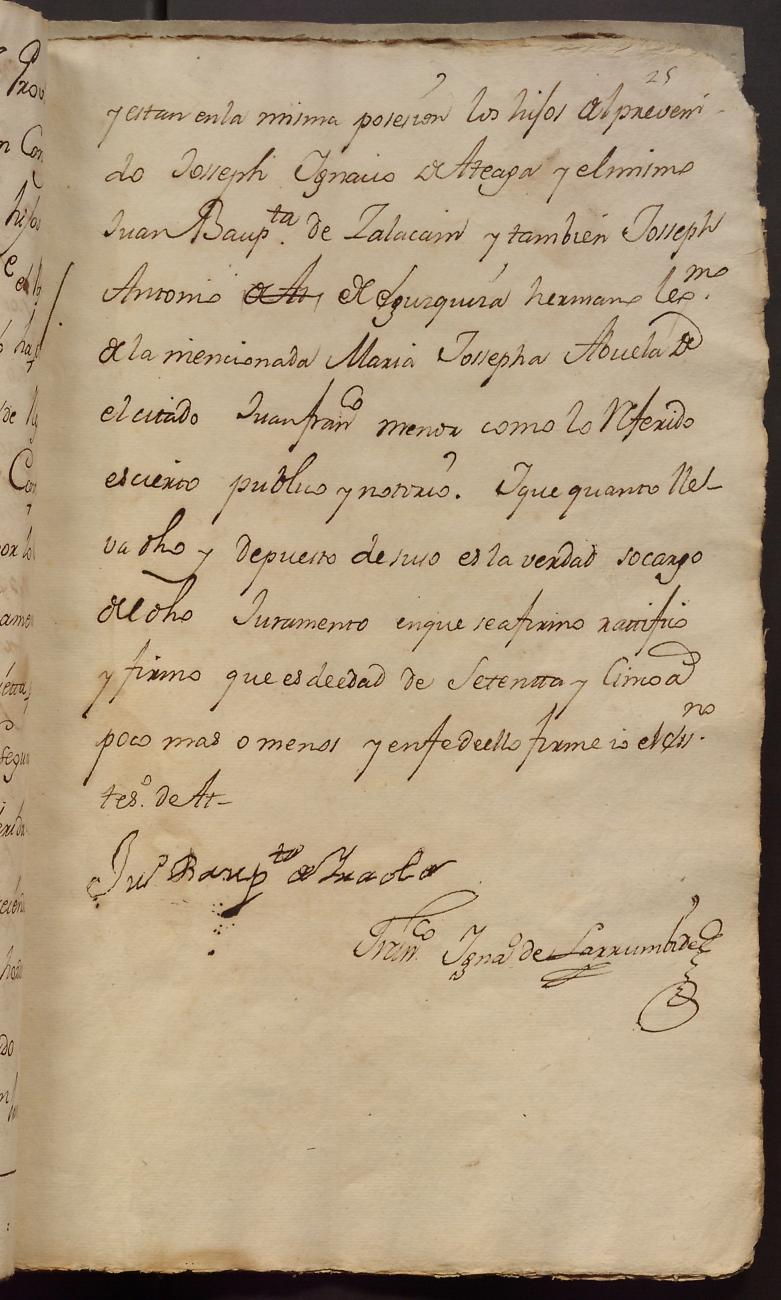 25
y estan en la misma posesion los hijos del preveni-
do Josseph Ignacio de Ateaga y el mismo
Juan Baupta. de Zalacain y tambien Josseph
Antonio de At, de Eguzquiza hermano lexmo.
de la mencionada Maria Jossepha Abuela de
el citado Juan franco menor como lo Referido
es cierto publico y notorio. Y que quanto lle-
va dho y depuesto de suso es la verdad so cargo
del dho Juramento en que se afirmo rattifico
y firmo que es de edad de Setentta y Cinco ad
poco mas o menos y en fe de ello firme io el essno.
teso. de At-
Jun Baupta de Iraola
Franco. Igno de Larrumbide